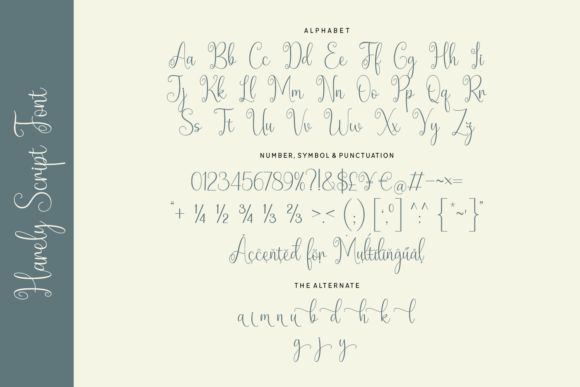 Harely Script Font
ALPHABET
Aa Bb Cc Dd Ee Ff Gg Hh Ii
Jj Kk Ll Mm Nn Oo Pp Qq Rr
Ss Tt Uu Vv Ww Xx Yy Zz
NUMBER, SYMBOL & PUNCTUATION
0123456789%?!&$£¥€@#-~×=
"+ ¼ ½ ¾ ⅓ ⅔ >.< (;) [°,0] ^:^ {*~'}"
Accented for Multilingual
THE ALTERNATE
a i m n u b d h k l
g j y